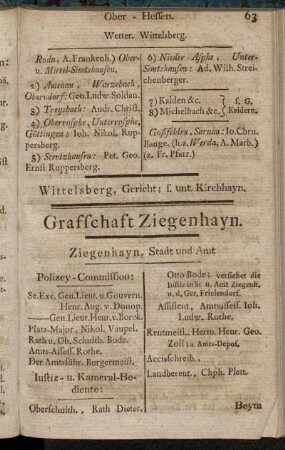 Ober-Hessen. 63
Wetter. Wittelsberg.
Roda, A. Frankenb.) Ober-
u. Mittel-Simtshausen.
2) Amenau, Warzebach,
Oberndorf: Gen. Ludw. Soldan.
3) Treysbach: Audr. Christ.
4) Oberrosphe, Unterrosphe,
Göttingen: Joh. Nikol. Rup-
persberg.
5) Stertzhausen: Pet. Geo.
Ernst Ruppersberg.
6) Nieder-Asphe, Unter-
Simtshausen: Ad. Wilh. Strei-
chenberger.
7) Kalden &c. } s. G.
8) Michelbach &c. } Kaldern.
Gosfelden, Sarnau: Jo. Chrn.
Bange. (h. s. Werda, A. Marb.)
(z. Fr. Pfarr.)
Wittelsberg, Gericht; s. unt. Kirchhayn.
Grafschaft Ziegenhayn.
Ziegenhayn, Stadt und Amt
Polizey-Commission:
Se. Exc. Gen. Lieut. u. Gouvern.
Henr. Aug. v. Donop.
Gen. Lieut. Henr. v. Borck.
Platz-Major, Nikol. Vaupel.
Rath u. Ob. Schulth. Bode.
Amts-Assess. Rothe.
Der Amtsführ. Burgermeist.
Iustiz- u. Kameral-Be-
diente:
Oberschulth., Rath Dieter.
Otto Bode; versiehet die
Iustiz in St. u. Amt Ziegenh.
u. d. Ger. Frielendorf.
Assistent, Amtsassess. Joh.
Ludw. Rothe.
Rentmeist. Herm. Henr. Geo.
Zoll; a. Amts-Depos.
Accisschreib.,
Landbereut., Chph. Plett.
Beym